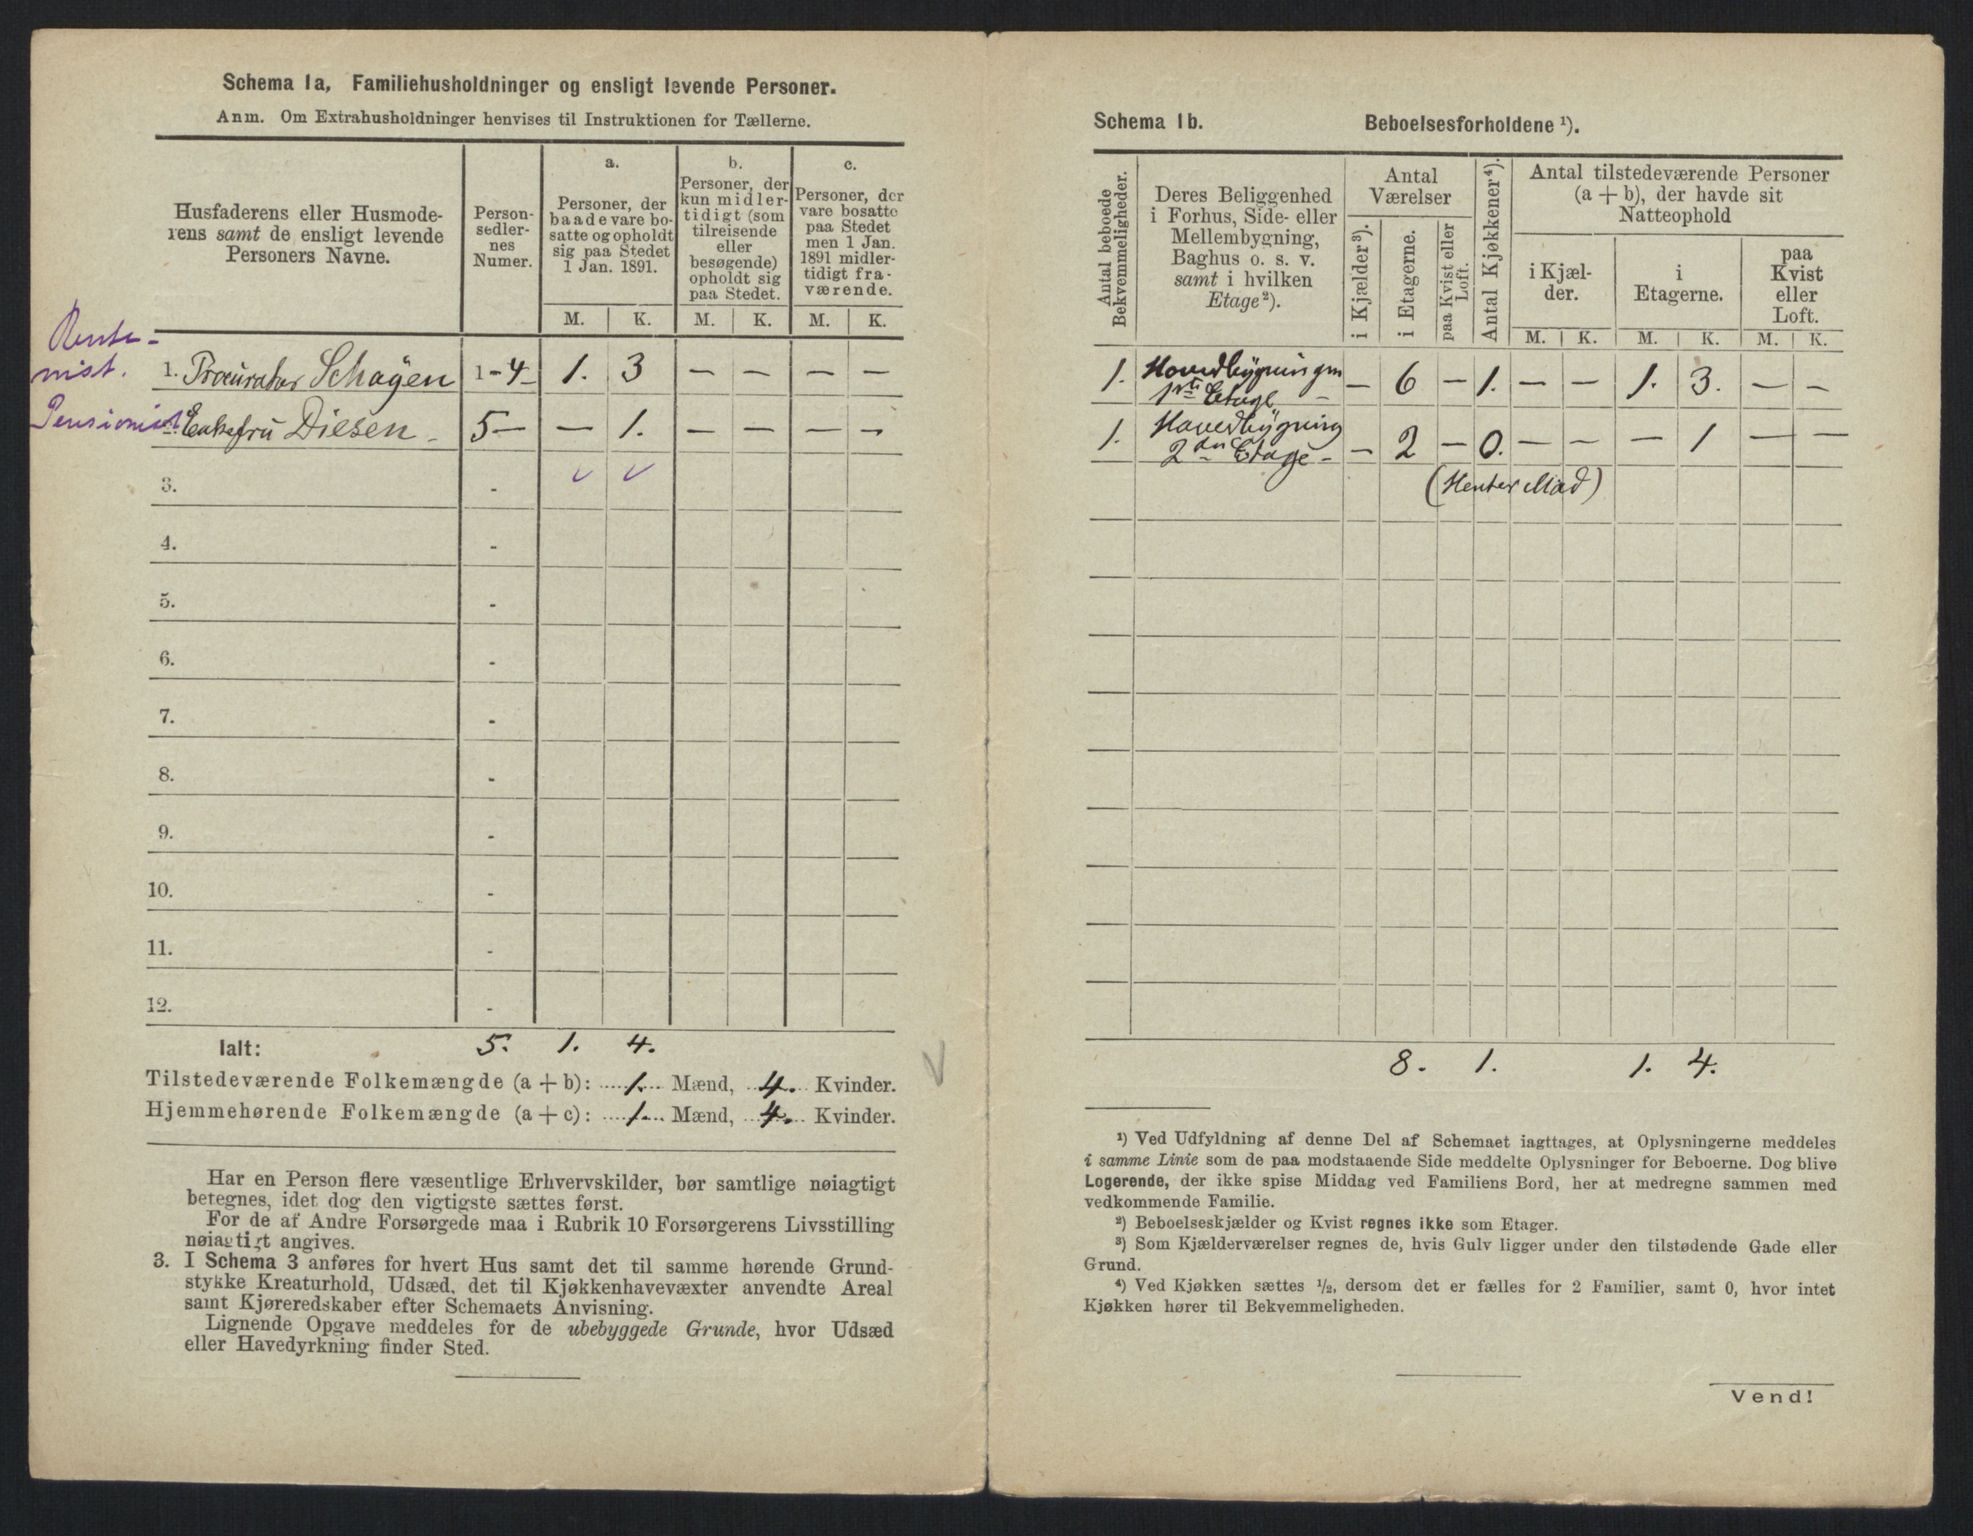 Schema 1a, Familiehusholdninger og ensligt levende Personer.
Anm. Om Extrahusholdninger henvises til Instruktionen for Tællerne.
Husfaderens eller Husmode-
rens samt de ensligt levende
Personers Navne.
Person-
sedler-
nes
Numer.
a.
Personer, der
baade vare bo-
satte og opholdt
sig paa Stedet
1 Jan. 1891.
b.
Personer, der
kun midler-
tidigt (som
tilreisende
eller
besøgende)
opholdt sig
paa Stedet.
c.
Personer, der
vare bosatte
paa Stedet
men 1 Jan.
1891 midler-
tidigt fra-
værende.
M. K. M. K. M. K.
Rente-
nist.
1. Procurator Schøyen 1-4 1. 3 — — — —
Pensionist
Enkefru Diesen 5 — — 1. — — — —
3. -
4. -
5. -
6. -
7. -
8. -
9. -
10. -
11. -
12. -
Ialt: 5. 1. 4.
Tilstedeværende Folkemængde (a + b): 1. Mænd, 4. Kvinder.
Hjemmehørende Folkemængde (a + c): 1. Mænd, 4. Kvinder.
Har en Person flere væsentlige Erhvervskilder, bør samtlige nøiagtigt
betegnes, idet dog den vigtigste sættes først.
For de af Andre Forsørgede maa i Rubrik 10 Forsørgerens Livsstilling
nøiagtigt angives.
3. I Schema 3 anføres for hvert Hus samt det til samme hørende Grund-
stykke Kreaturhold, Udsæd, det til Kjøkkenhavevæxter anvendte Areal
samt Kjøreredskaber efter Schemaets Anvisning.
Lignende Opgave meddeles for de ubebyggede Grunde, hvor Udsæd
eller Havedyrkning finder Sted.
Schema 1b. Beboelsesforholdene ¹).
Antal beboede
Bekvemmeligheder.
Deres Beliggenhed
i Forhus, Side- eller
Mellembygning,
Baghus o. s. v.
samt i hvilken
Etage²).
Antal
Værelser
i Kjælder³).
i Etagerne.
paa Kvist eller
Loft.
Antal Kjøkkener⁴).
Antal tilstedeværende Personer
(a + b), der havde sit
Natteophold
i Kjæl-
der.
i
Etagerne.
paa
Kvist
eller
Loft.
M. K. M. K. M. K.
1. Hovedbygningen — 6 — 1. — — 1. 3. — —
1ste Etage —
1. Hovedbygning
2den Etage — — 2 — 0. — — — 1 — —
(Henter Mad)
8. 1. 1. 4.
¹) Ved Udfyldning af denne Del af Schemaet iagttages, at Oplysningerne meddeles
i samme Linie som de paa modstaaende Side meddelte Oplysninger for Beboerne. Dog blive
Logerende, der ikke spise Middag ved Familiens Bord, her at medregne sammen med
vedkommende Familie.
²) Beboelseskjælder og Kvist regnes ikke som Etager.
³) Som Kjælderværelser regnes de, hvis Gulv ligger under den tilstødende Gade eller
Grund.
⁴) Ved Kjøkken sættes ½, dersom det er fælles for 2 Familier, samt 0, hvor intet
Kjøkken hører til Bekvemmeligheden.
Vend!